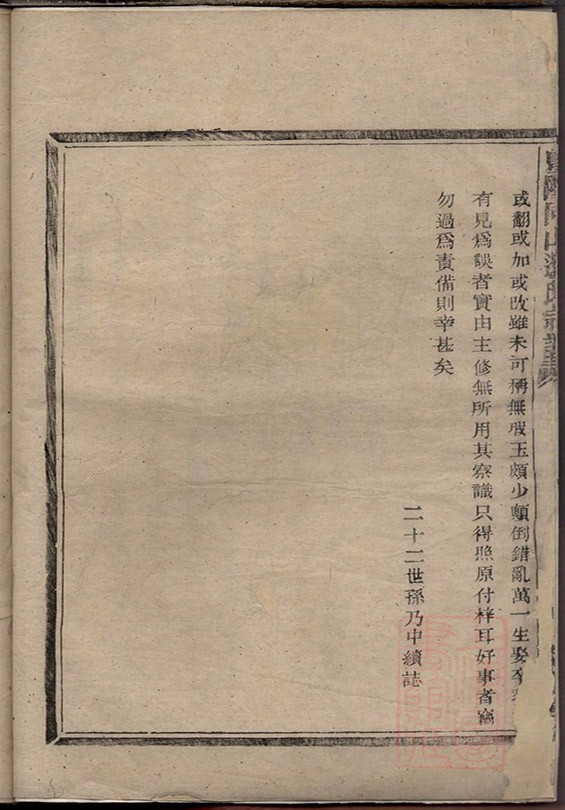 或翻或加或改雖未可稱無瑕玉頗少顛倒錯亂萬一生娶卒
有見爲誤者實由主修無所用其察識只得照原付梓耳好事者
勿過爲責備則幸甚矣
二十二世孫乃中續誌